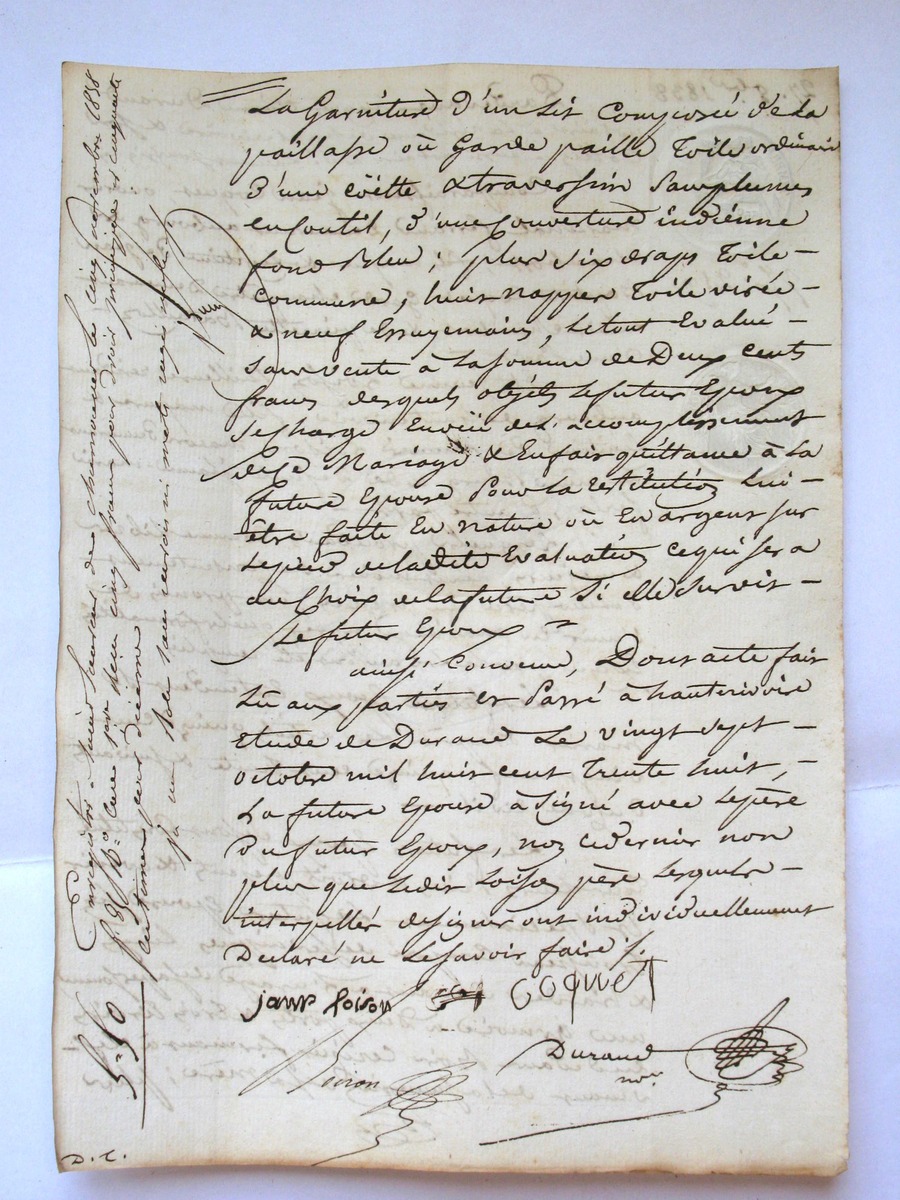 La Garniture d'un Lit Composée de La
paillasse où Garde paille Toile ordinaire
d'une coëtte & traversin Sans plumes
en Coutil, d'une Couverture indiénne
fond Bleu; plus Six draps Toile
Commune, huit nappes Toile
& neuf Essuyemains, Le tout Evalué
Sans vente à La Sômme de Deux cents
francs desquels objéts Le futur Epoux
Se Charge En vüe de l'accomplissement
de Ce Mariage & En fait quittance à La
future Epouse Pour La restitution Lui
être faite En nature où En argent sur
Le pied de Ladite Evaluation ce qui Sera
au Choix de La future Si elle Survit
Le futur Epoux
ainsi Convenu, Dont acte fait
Lû aux parties et Passé à hauterivoire
Etude de Durand Le vingt Sept
octobre mil huit cent Trente huit,
La future Epouse à Signé avec Le père
du futur Epoux, non ce dernier non
plus que Ledit Loison père Lesquels
interpellés de Signer ont individuellement
Déclaré ne Le Savoir faire ./.
janne loison coquet
Durand
nore
Enregistré à Saint Laurent de chamousset le cinq novembre 1838
cinq francs pour droit principal et cinquante
centimes pour dixieme
5=50
D. C.